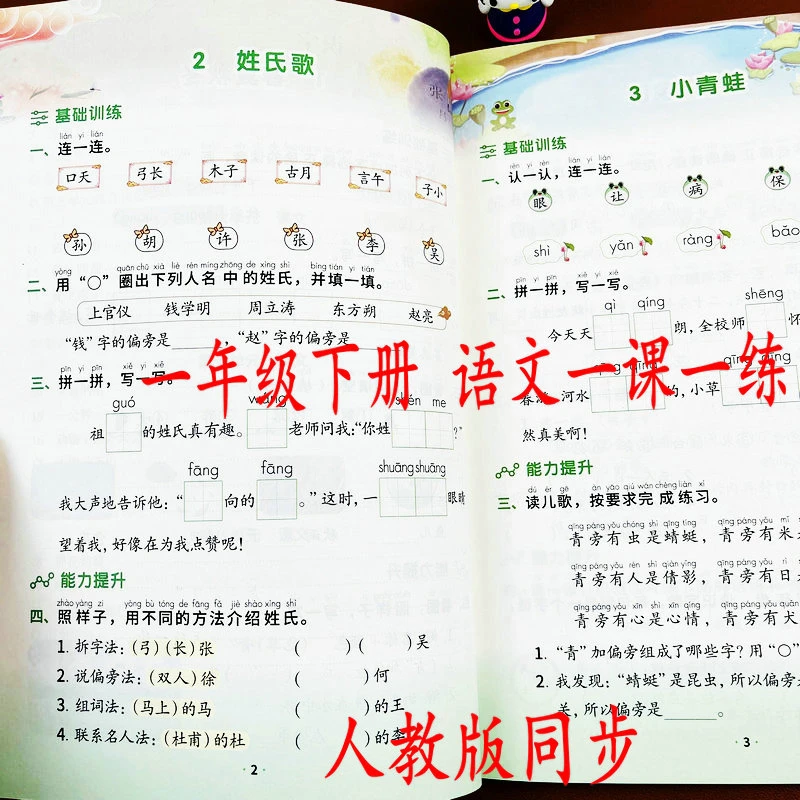 2 姓氏歌
基础训练
lián yi lián
一、连一连。
口天 弓长 木子 古月 言午 子小
孙 胡 许 张 李 吴
yòng quān chū xià liè rén míng zhōng de xìng shì bìng tián yi tián
二、用“○”圈出下列人名中的姓氏，并填一填。
上官仪 钱学明 周立涛 东方朔 赵亮
“钱”字的偏旁是______，“赵”字的偏旁是
pīn yi pīn xiě yi xiě
三、拼一拼，写一写。
guó wáng shén me
祖 的姓氏真有趣。 老师问我:“你姓 ?”
fāng fāng shuāng shuāng
我大声地告诉他:“ 向的 。”这时，一 眼睛
望着我，好像在为我点赞呢！
能力提升
zhào yàng zi yòng bù tóng de fāng fǎ jiè shào xìng shì
四、照样子，用不同的方法介绍姓氏。
1. 拆字法：(弓)(长)张 ( )( )吴
2. 说偏旁法：(双人)徐 ( )何
3. 组词法：(马上)的马 ( )的王
4. 联系名人法：(杜甫)的杜 ( )的李
2
张
3 小青蛙
基础训练
rèn yi rèn lián yi lián
一、认一认，连一连。
眼 让 病 保
shì yǎn ràng bǎo
pīn yi pīn xiě yi xiě
二、拼一拼，写一写。
qì qíng shēng
今天天 朗，全校师 怀
河水 的，小草
然真美啊！
能力提升
dú ér gē àn yāo qiú wán chéng liàn xí
三、读儿歌，按要求完成练习。
qīng páng yǒu chóng shì qīng tíng qīng páng yǒu mǐ
青旁有虫是蜻蜓，青旁有米
qīng páng yǒu rén shì qiàn yǐng qīng páng yǒu rì
青旁有人是倩影，青旁有日
qīng páng yǒu xīn shì xīn qíng qīng páng yǒu quǎn
青旁有心是心情，青旁有犬
1. “青”加偏旁组成了哪些字？用“○”
2. 我发现：“蜻蜓”是昆虫，所以偏旁
关，所以偏旁是______。
3
一年级下册 语文一课一练
人教版同步